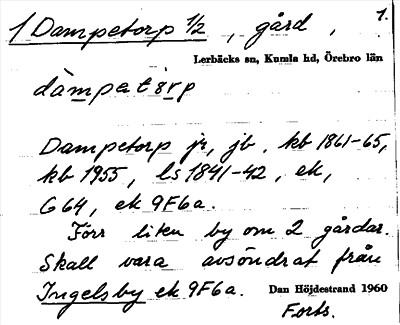 1 Dampetorp 1/2, gård, 1.
Lerbäcks sn, Kumla hd, Örebro län
dàmpetɷrp
Dampetorp jr, jb, kb 1861-65,
kb 1955, ls 1841-42, ek,
G 64, ek 9F6a.
Förr liten by om 2 gårdar.
Skall vara avsöndrat från
Ingelsby ek 9F6a. Dan Höjdestrand 1960
Forts.